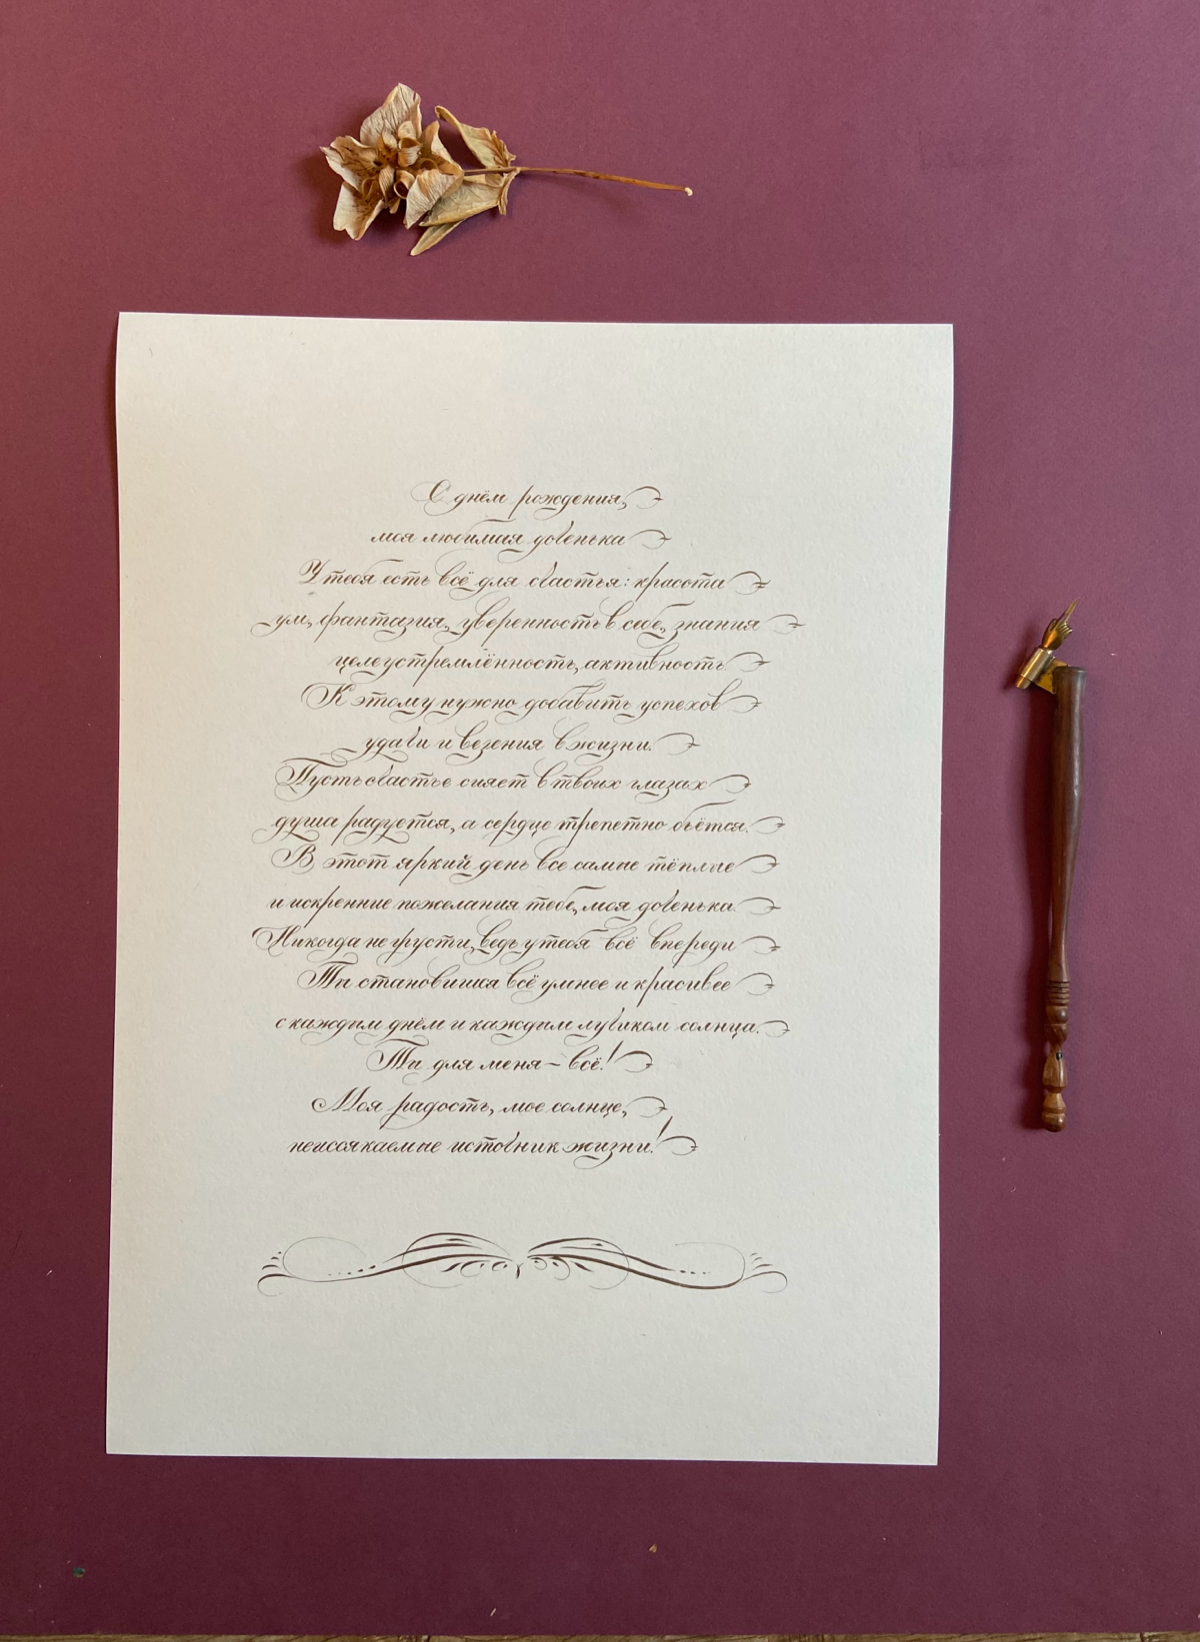 С днём рождения,
моя любимая доченька
У тебя есть всё для счастья: красота
ум, фантазия, уверенность в себе, знания
целеустремлённость, активность.
К этому нужно добавить успехов
удачи и везения в жизни.
Пусть счастье сияет в твоих глазах
душа радуется, а сердце трепетно бьётся.
В этот яркий день все самые тёплые
и искренние пожелания тебе, моя доченька.
Никогда не грусти, ведь у тебя всё впереди
Ты становишься всё умнее и красивее
с каждым днём и каждым лучиком солнца.
Ты для меня – всё!
Моя радость, мое солнце,
неиссякаемые источник жизни!